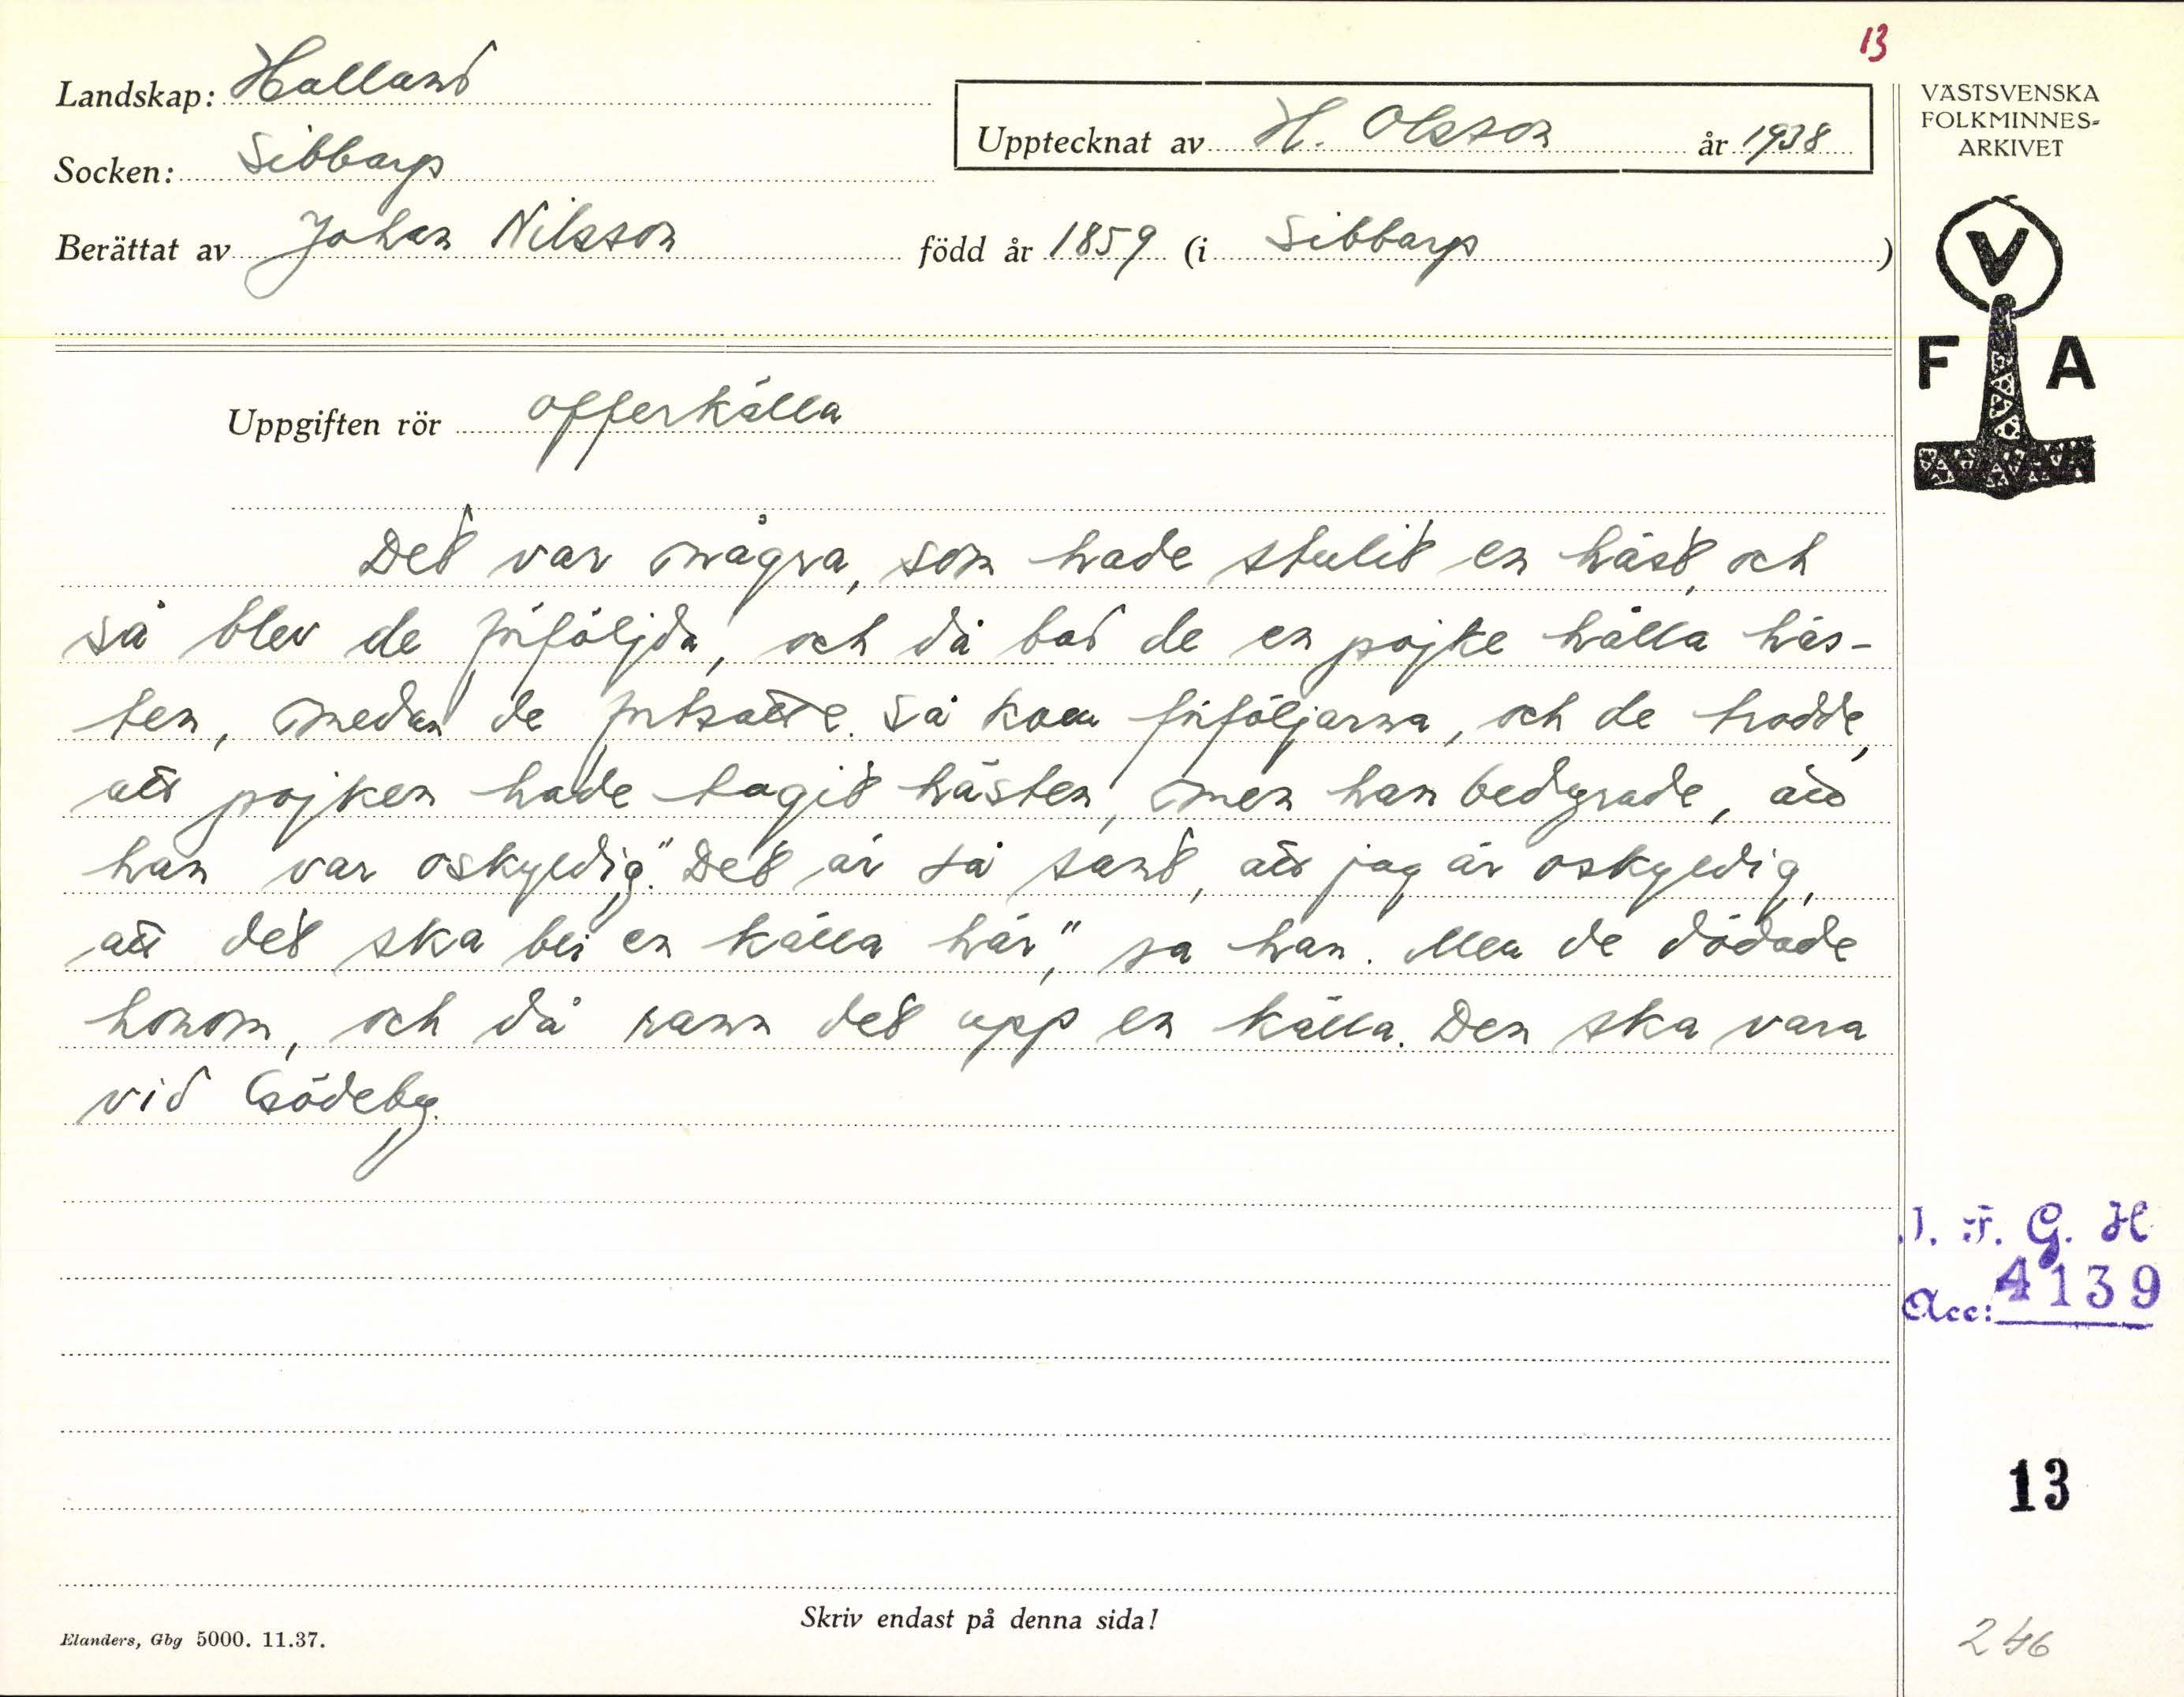 13
Landskap: Halland
Socken: Sibbarp
Berättat av Johan Nilsson
Upptecknat av H. Olsson år 1938
född år 1859 (i Sibbarp)
VÄSTSVENSKA
FOLKMINNES-
ARKIVET
V
F A
Uppgiften rör offerkälla
Det var några, som hade stulit en häst, och
så blev de förföljda, och då bad de en pojke hålla häs-
ten, medan de fortsatte. Så kom förföljarna, och de trodde,
att pojken hade tagit hästen, men han bedyrade, att
han var oskyldig. "Det är så sant, att jag är oskyldig,
att det ska bli en källa här", sa han. Men de dödade
honom, och då rann det upp en källa. Den ska vara
vid Gödeby.
I. F. G. H
Acc: 4139
13
Skriv endast på denna sida!
Elanders, Gbg 5000. 11.37.
246